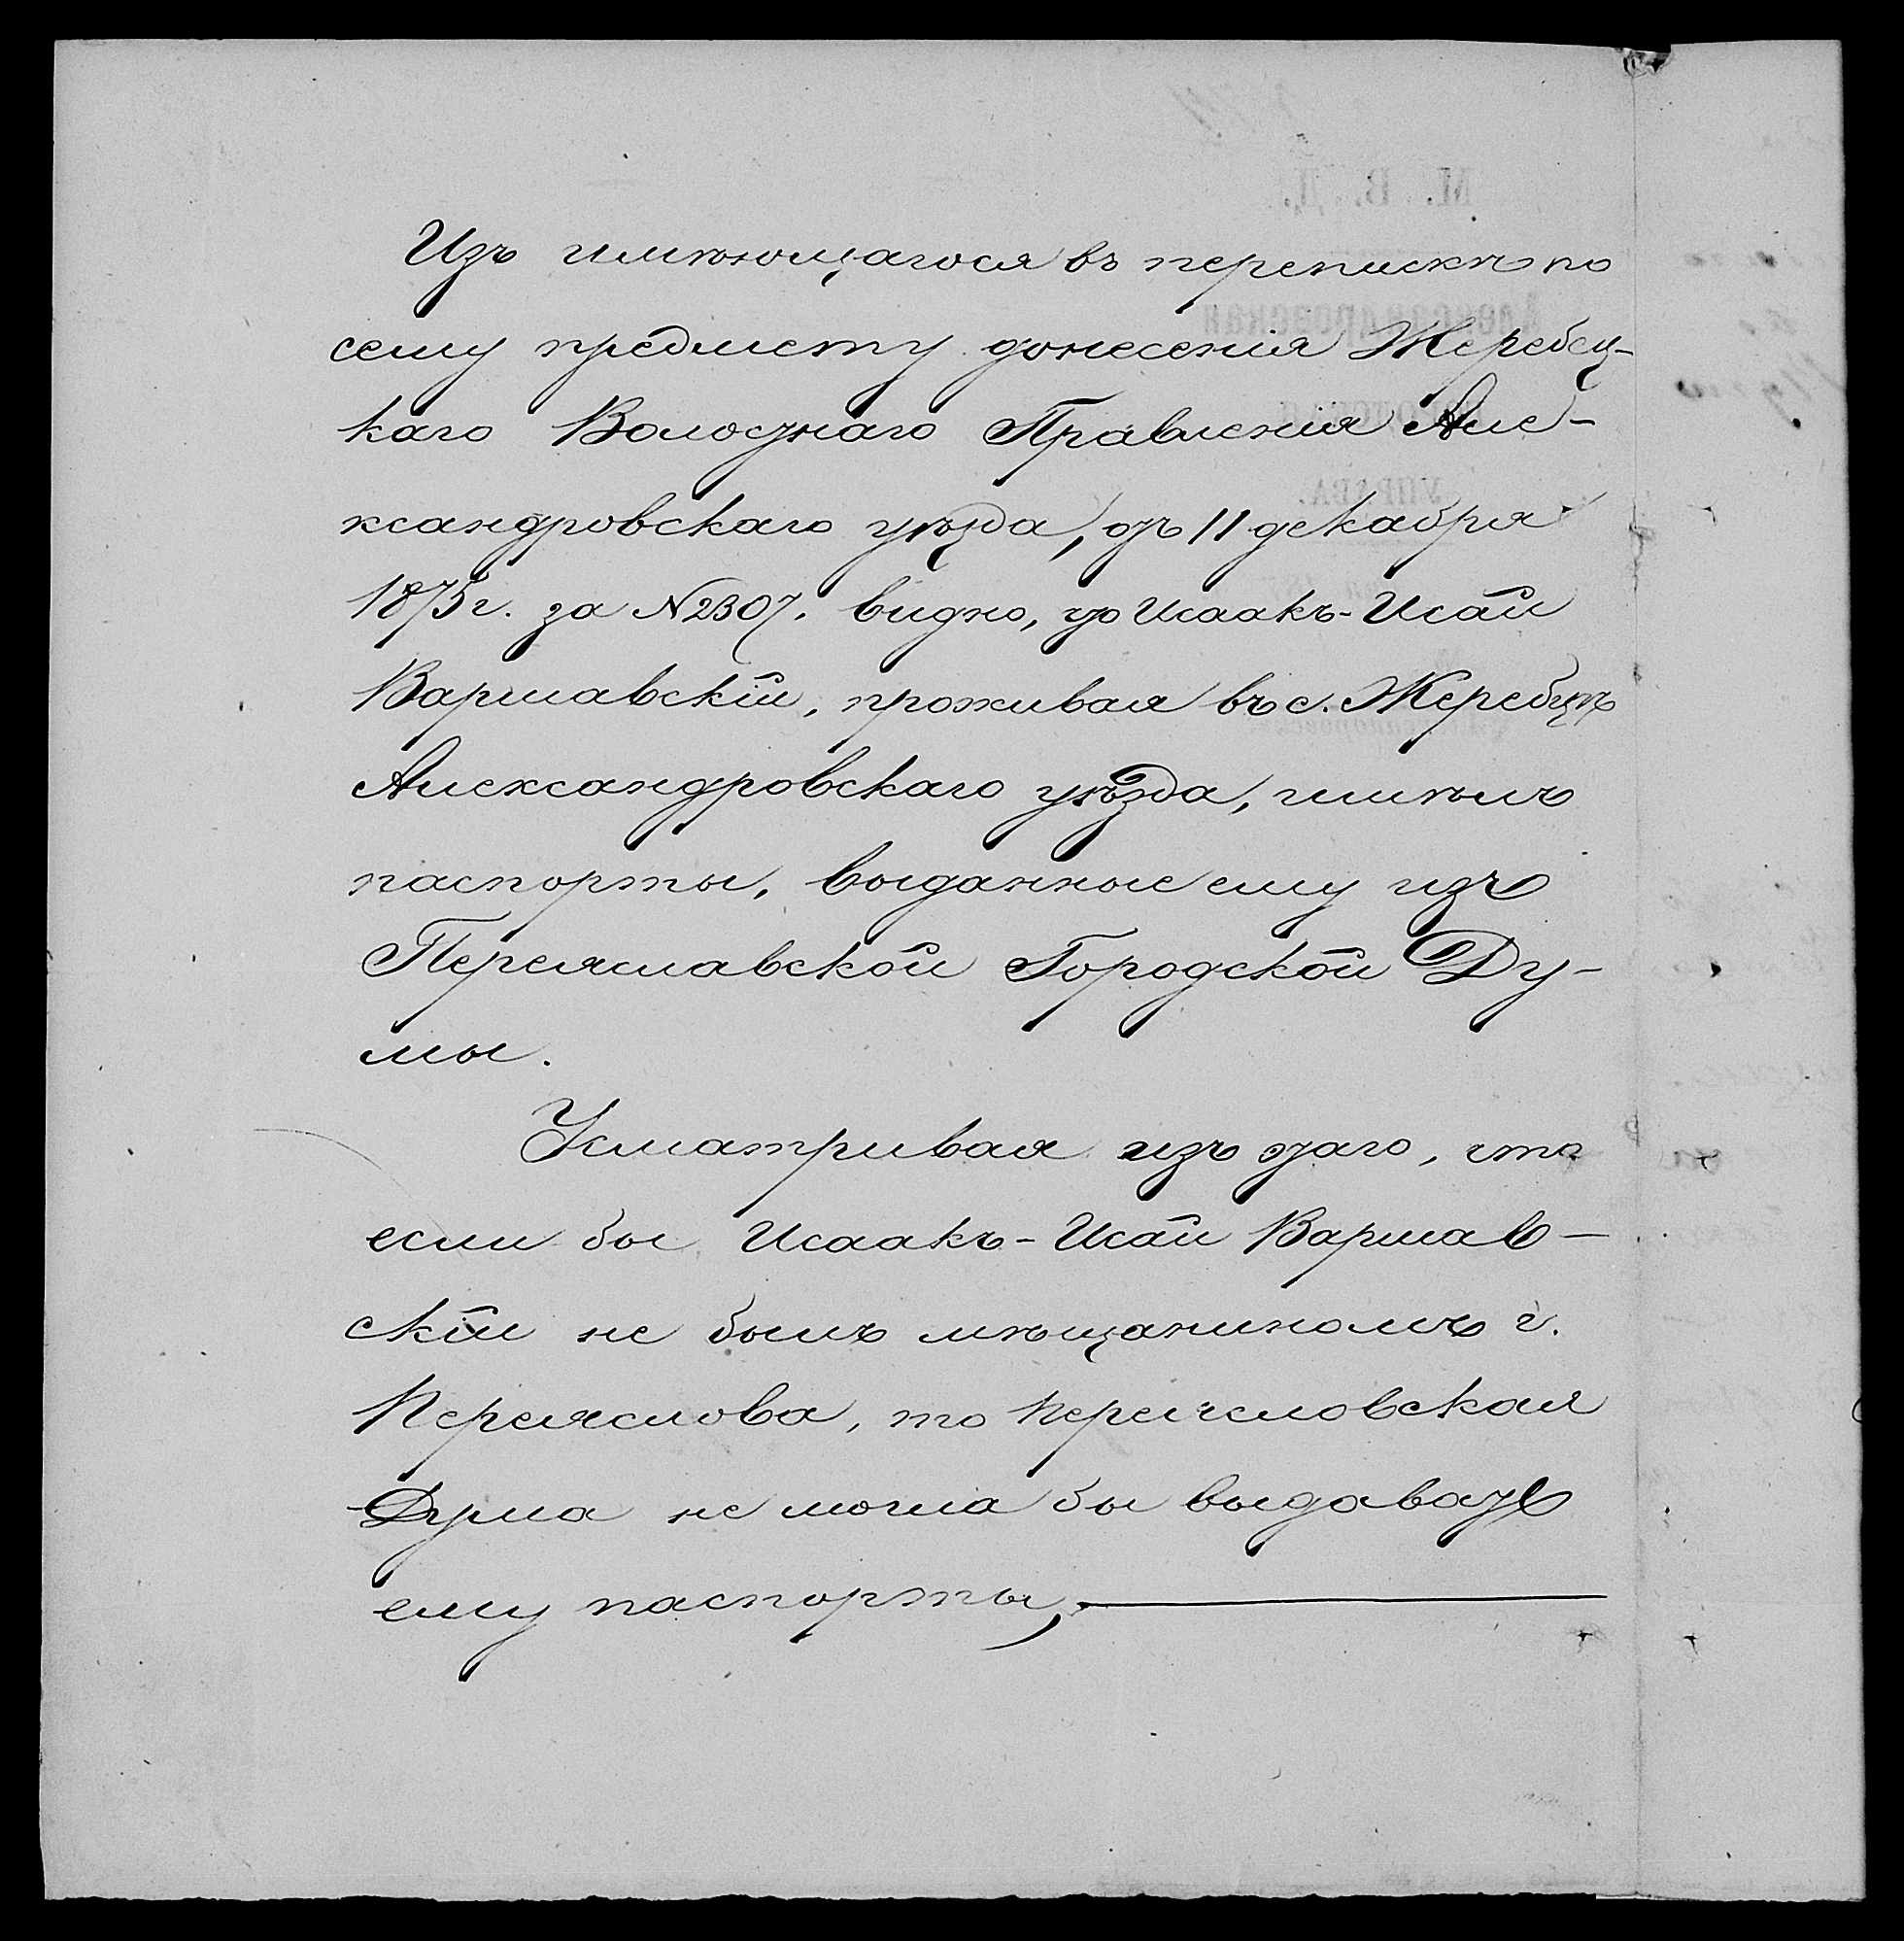 Изъ имѣющагося въ перепискѣ по
сему предмету донесенія Жеребец-
каго Волостнаго Правленія Але-
ксандровскаго уѣзда, отъ 11 декабря
1875 г. за №2307. видно, что Исаакъ-Исай
Варшавскій, проживая въ с. Жеребцѣ
Александровскаго уѣзда, имѣлъ
паспорты, выданные ему изъ
Переяславской Городской Ду-
мы.
Усматривая изъ этаго, что
если бы Исаакъ-Исай Варшав-
скій не былъ мѣщаниномъ г.
Переяслова, то Переясловская
Дума не могла бы выдавать
ему паспорты,